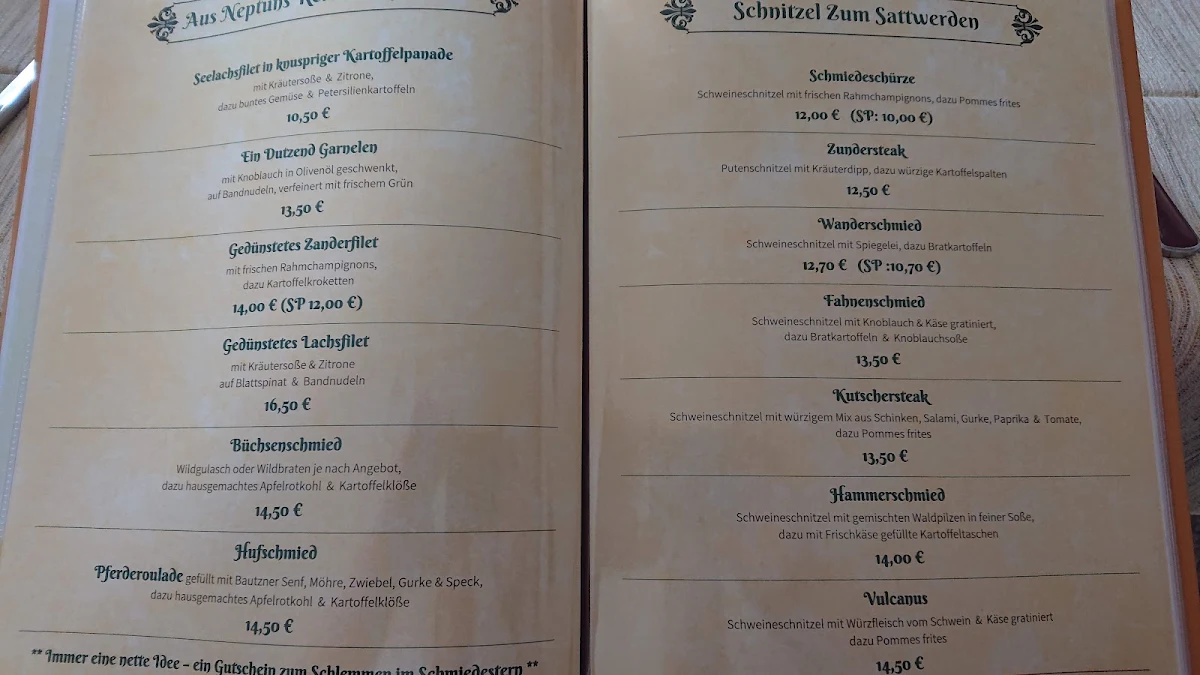 Aus Neptuns
Seelachsfilet in knuspriger Kartoffelpanade
mit Kräutersoße & Zitrone,
dazu buntes Gemüse & Petersilienkartoffeln
10,50 €
Ein Dutzend Garnelen
mit Knoblauch in Olivenöl geschwenkt,
auf Bandnudeln, verfeinert mit frischem Grün
13,50 €
Gedünstetes Zanderfilet
mit frischen Rahmchampignons,
dazu Kartoffelkroketten
14,00 € (SP 12,00 €)
Gedünstetes Lachsfilet
mit Kräutersoße & Zitrone
auf Blattspinat & Bandnudeln
16,50 €
Büchsenschmied
Wildgulasch oder Wildbraten je nach Angebot,
dazu hausgemachtes Apfelrotkohl & Kartoffelklöße
14,50 €
Hufschmied
Pferderoulade gefüllt mit Bautzner Senf, Möhre, Zwiebel, Gurke & Speck,
dazu hausgemachtes Apfelrotkohl & Kartoffelklöße
14,50 €
** Immer eine nette Idee – ein Gutschein zum Schlemmen im Schmiedestern **
Schnitzel Zum Sattwerden
Schmiedeschürze
Schweineschnitzel mit frischen Rahmchampignons, dazu Pommes frites
12,00 € (SP: 10,00 €)
Zundersteak
Putenschnitzel mit Kräuterdipp, dazu würzige Kartoffelspalten
12,50 €
Wanderschmied
Schweineschnitzel mit Spiegelei, dazu Bratkartoffeln
12,70 € (SP :10,70 €)
Fahnenschmied
Schweineschnitzel mit Knoblauch & Käse gratiniert,
dazu Bratkartoffeln & Knoblauchsoße
13,50 €
Kutschersteak
Schweineschnitzel mit würzigem Mix aus Schinken, Salami, Gurke, Paprika & Tomate,
dazu Pommes frites
13,50 €
Hammerschmied
Schweineschnitzel mit gemischten Waldpilzen in feiner Soße,
dazu mit Frischkäse gefüllte Kartoffeltaschen
14,00 €
Vulcanus
Schweineschnitzel mit Würzfleisch vom Schwein & Käse gratiniert
dazu Pommes frites
14,50 €